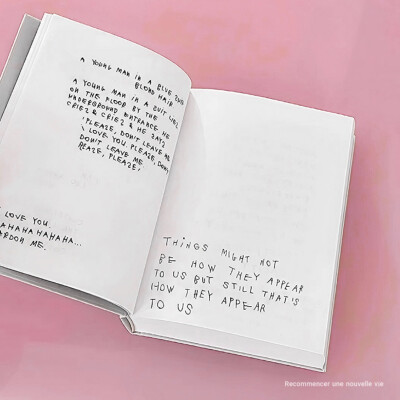 A YOUNG MAN IN A BLUE
BLOND HAIR
A YOUNG MAN IN A SUIT
ON THE FLOOR BY THE
UNDERGROUND ENTRANCE HE
CRIES & CRIES & HE SAYS
'PLEASE, DON'T LEAVE ME
I LOVE YOU, PLEASE, DON'T
DON'T LEAVE ME.
PLEASE, PLEASE,'
LOVE YOU.
AHAHAHAHAHA...
ARDON ME.
THINGS MIGHT NOT
BE HOW THEY APPEAR
TO US BUT STILL THAT'S
HOW THEY APPEAR
TO US
Recommencer une nouvelle vie